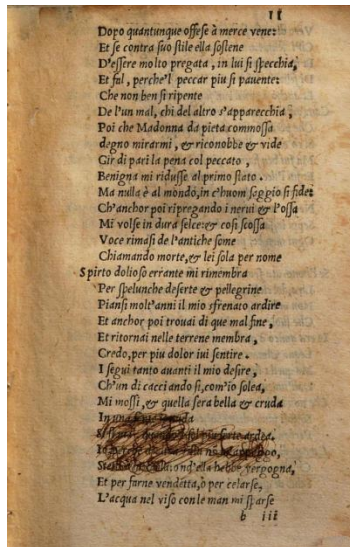 11
Dopo quantunque offese à merce vene:
Et se contra suo stile ella sostene
D'essere molto pregata, in lui si specchia,
Et fal, perche'l peccar piu si pauente:
Che non ben si ripente
De l'un mal, chi del altro s'apparecchia,
Poi che Madonna da pieta commossa
degno mirarmi, & riconobbe & vide
Gir di pari la pena col peccato,
Benigna mi ridusse al primo stato.
Ma nulla è al mondo, in c'huom saggio si fide:
Ch'anchor poi ripregando i nerui & l'ossa
Mi volse in dura selce: & cosi scossa
Voce rimasi de l'antiche some
Chiamando morte, & lei sola per nome
Spirto doglioso errante mi rimembra
Per spelunche deserte & pellegrine
Piansi molt'anni il mio sfrenato ardire
Et anchor poi trouai di que mal fine,
Et ritornai nelle terrene membra,
Credo, per piu dolor iui sentire.
I segui tanto auanti il mio desire,
Ch'un di cacciando si, com'io solea,
Mi mossi, & quella fera bella & cruda
In una
vergogna,
Et per farne vendetta, ò per celarse,
L'acqua nel viso con le man mi sparse
b iii